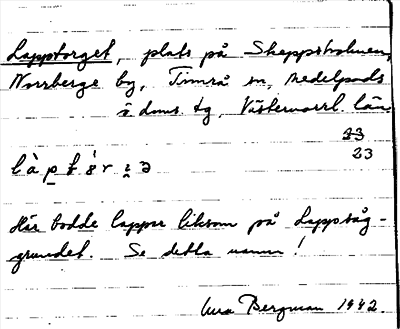 Lapptorget, plats på Skeppsholmen,
Norrberge by, Timrå sn, Medelpads
ö doms. tg, Västernorrl. län.
23
23
l à p t
Här bodde lappar liksom på Lapptåg-
grundet. Se detta namn!
Bergman 1942.